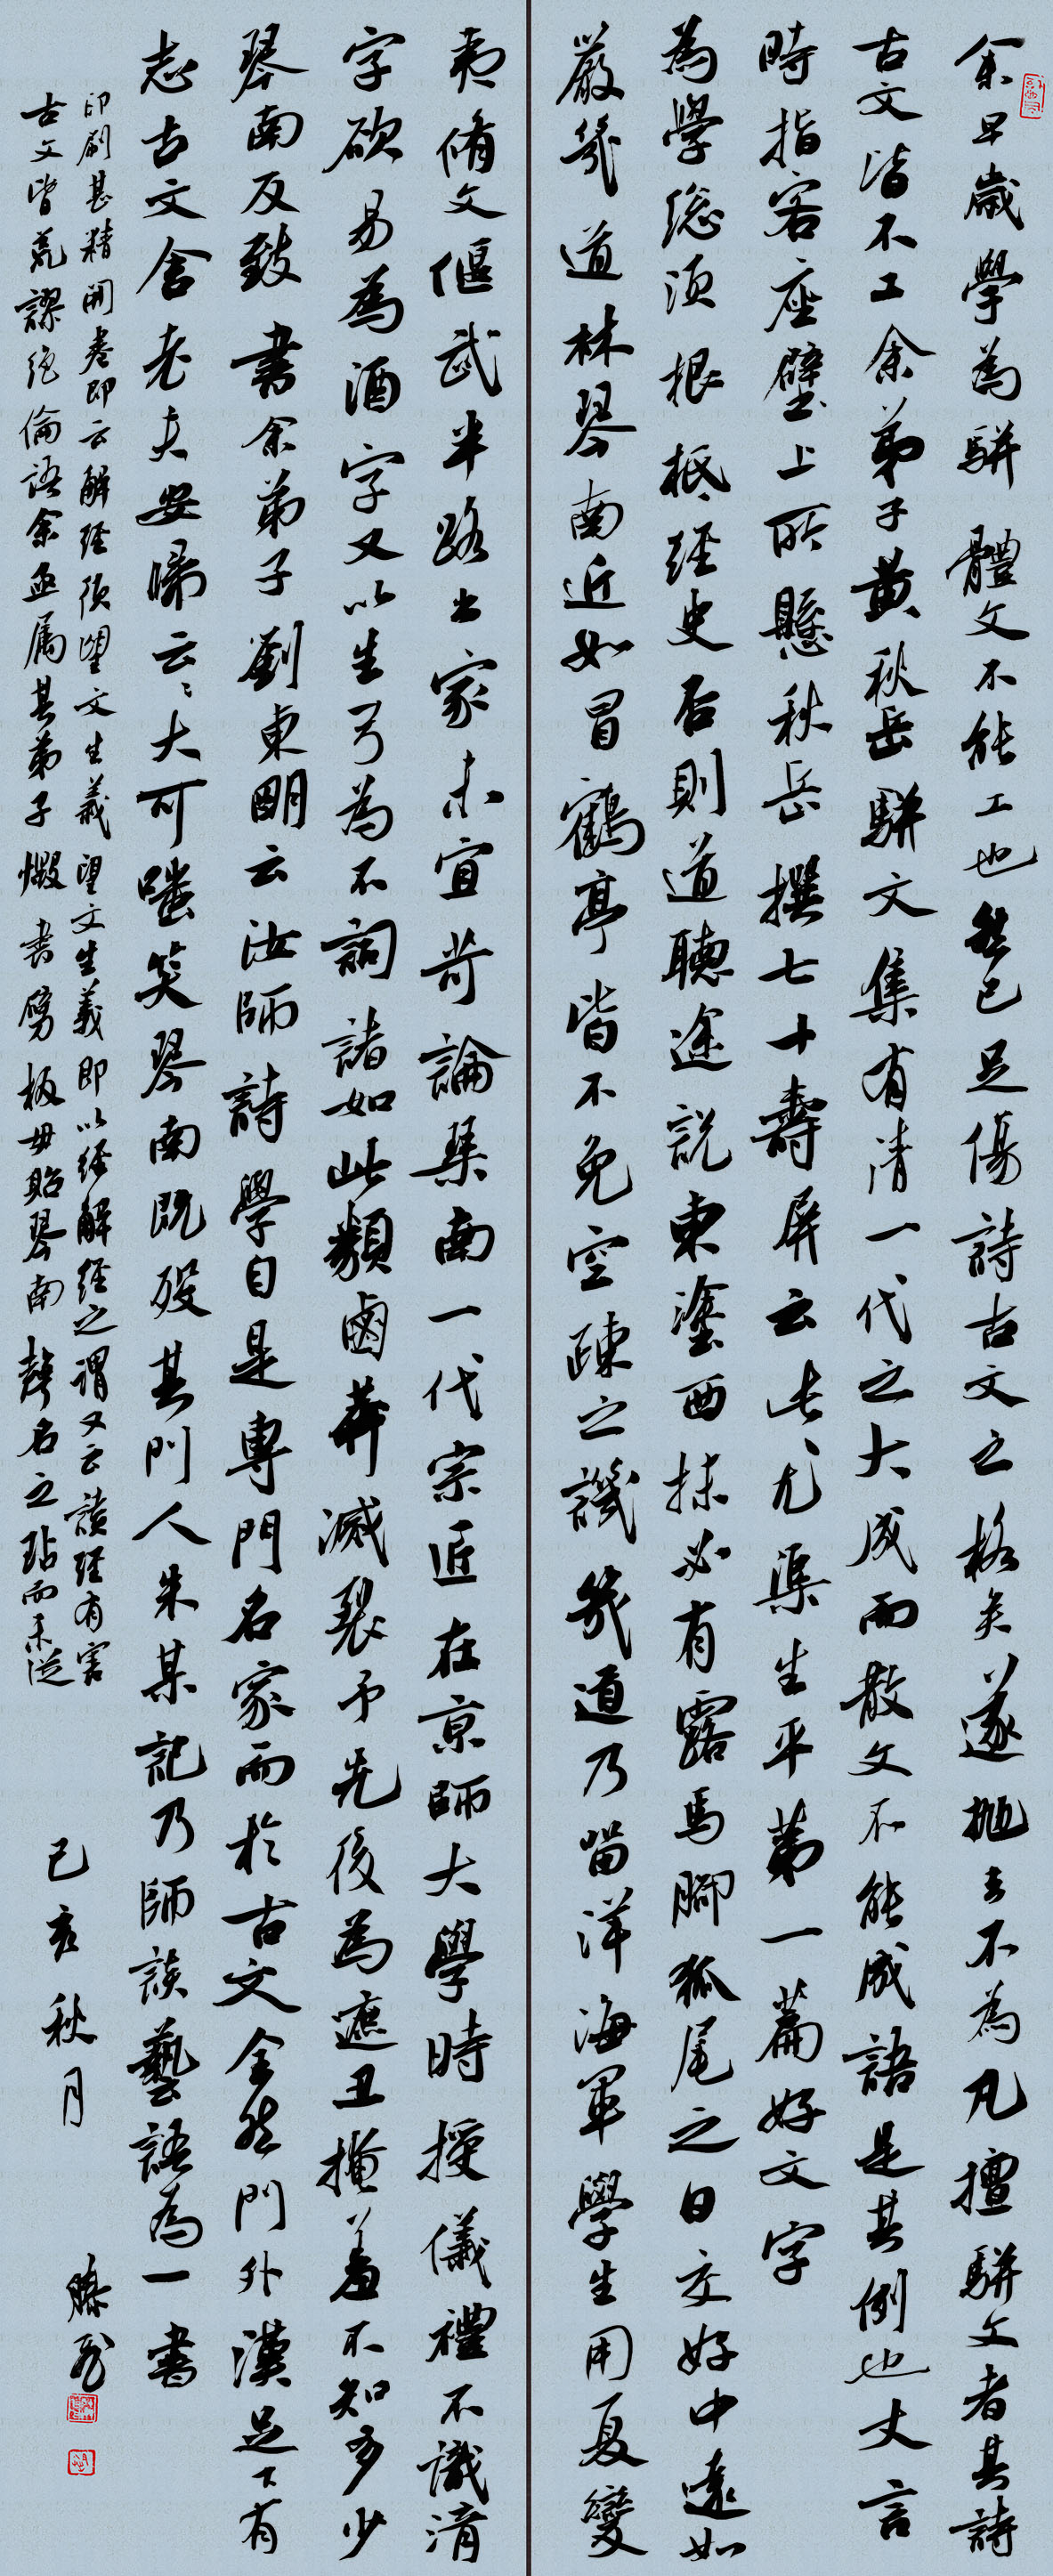 余早歲學為駢體文不能工也然已足傷詩古文之格矣遂抛去不為凡擅駢文者其詩
古文皆不工余弟子黃秋岳駢文集有清一代之大成而散文不能成語是其例也丈言
時指客座壁上所懸秋岳撰七十壽屏云此尤渠生平第一篇好文字
為學總須根柢經史否則道聽途說東塗西抹必有露馬腳狐尾之日交好中遠如
嚴幾道林琴南近如冒鶴亭皆不免空疎之譏幾道乃留洋海軍學生用夏變
夷修文偃武半路出家未宜苛論琴南一代宗匠在京師大學時授儀禮不識湇
字欲易為酒字又以生弓為不詞諸如此類鹵莽滅裂予先後為遮丑掩羞不知多少
琴南反致書余弟子劉東明云汝師詩學自是專門名家而於古文全然門外漢足下有
志古文舍老夫安歸云云大可嗤笑琴南既殁其門人朱某記乃師談藝語為一書
印刷甚精開卷即云解經須望文生義望文生義即以經解經之謂又云讀經有害
古文皆荒謬絕倫語余亟屬其弟子燬書劈板毋貽琴南聲名之玷而未從
己亥秋月
滕飛